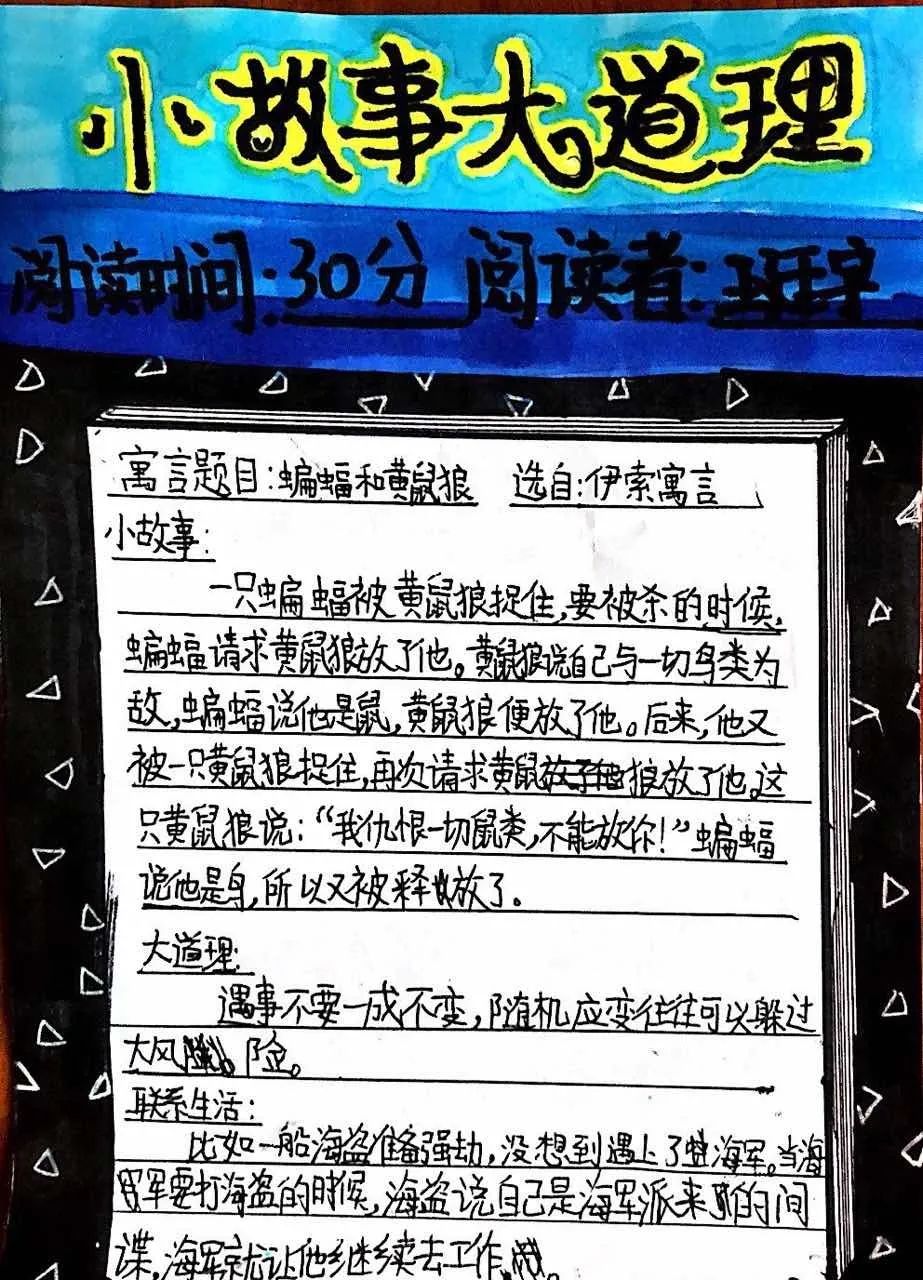 小故事大道理
阅读时间:30分 阅读者:班宇
寓言题目:蝙蝠和黄鼠狼 选自:伊索寓言
小故事:
一只蝙蝠被黄鼠狼捉住,要被杀的时候,
蝙蝠请求黄鼠狼放了他。黄鼠狼说自己与一切鸟类为
敌,蝙蝠说他是鼠,黄鼠狼便放了他。后来,他又
被一只黄鼠狼捉住,再次请求黄鼠狼放了他。这
只黄鼠狼说:“我仇恨一切鼠类,不能放你!”蝙蝠
说他是鸟,所以又被释放了。
大道理:
遇事不要一成不变,随机应变往往可以躲过
大风险。
联系生活:
比如一船海盗准备强劫,没想到遇上了海军。当海
军要打海盗的时候,海盗说自己是海军派来的间
谍,海军就让他继续去工作。